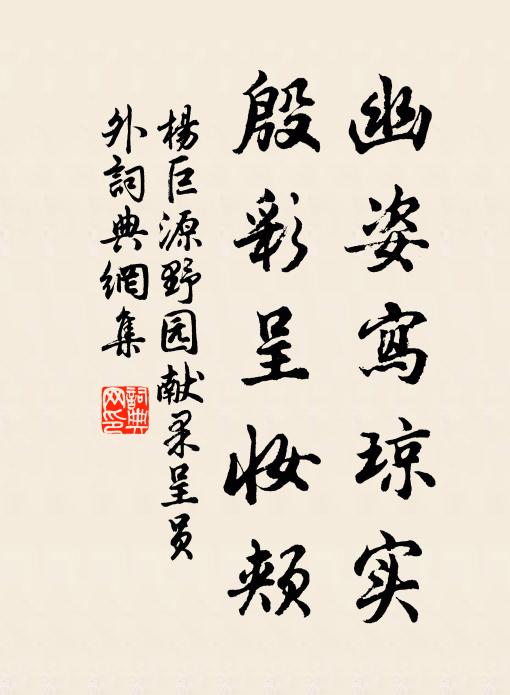 幽姿寫琼实
殷彩呈妆颊
楊巨源野园献果呈员
外詞典網集
詞典网印